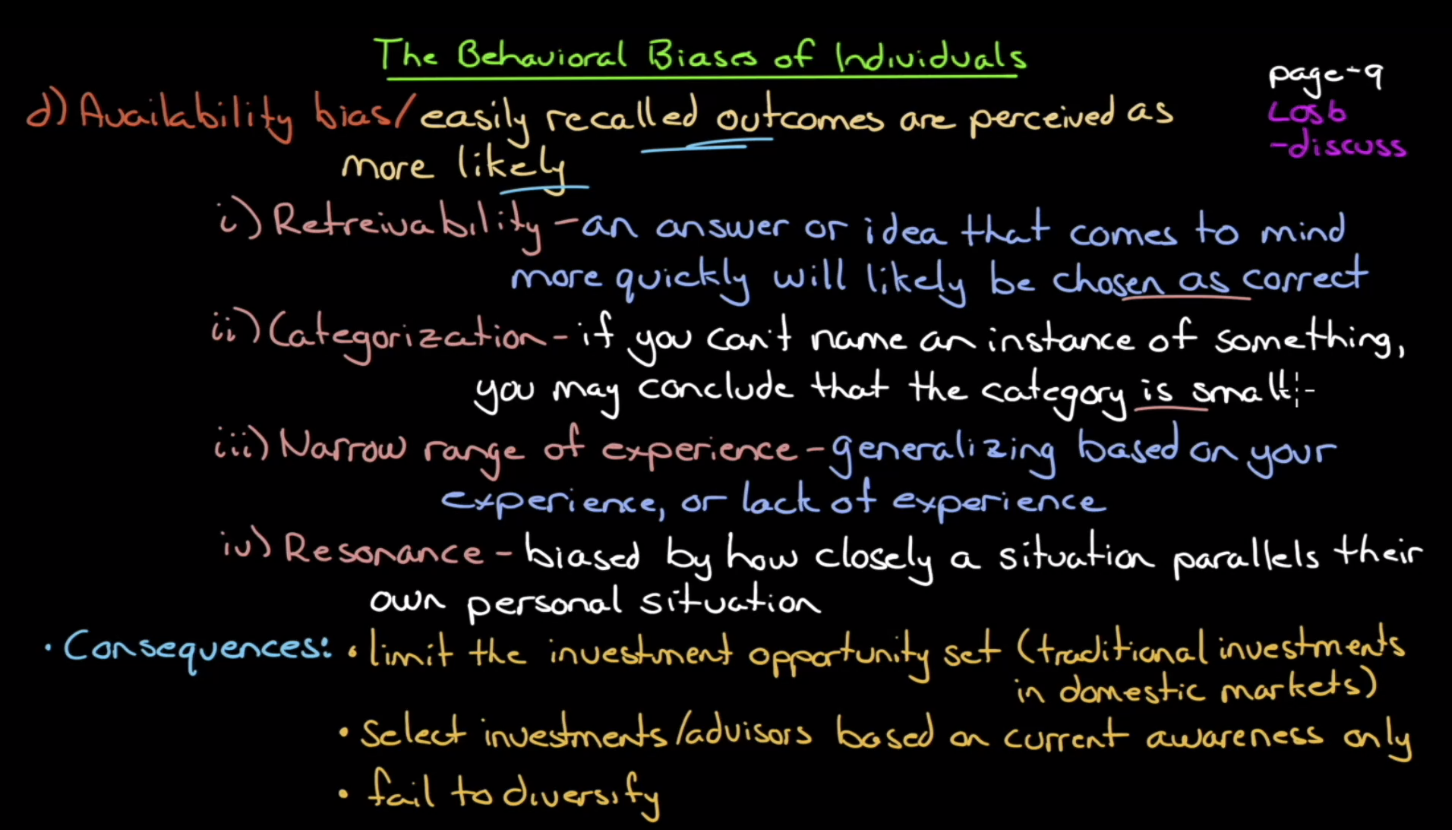 The Behavioral Biases of Individuals
page-9
LOSb
-discuss
d) Availability bias/easily recalled outcomes are perceived as
more likely
i) Retreivability - an answer or idea that comes to mind
more quickly will likely be chosen as correct
ii) Categorization - if you can't name an instance of something,
you may conclude that the category is small
iii) Narrow range of experience - generalizing based on your
experience, or lack of experience
iv) Resonance - biased by how closely a situation parallels their
own personal situation
• Consequences: • limit the investment opportunity set (traditional investments
in domestic markets)
• select investments/advisors based on current awareness only
• fail to diversify